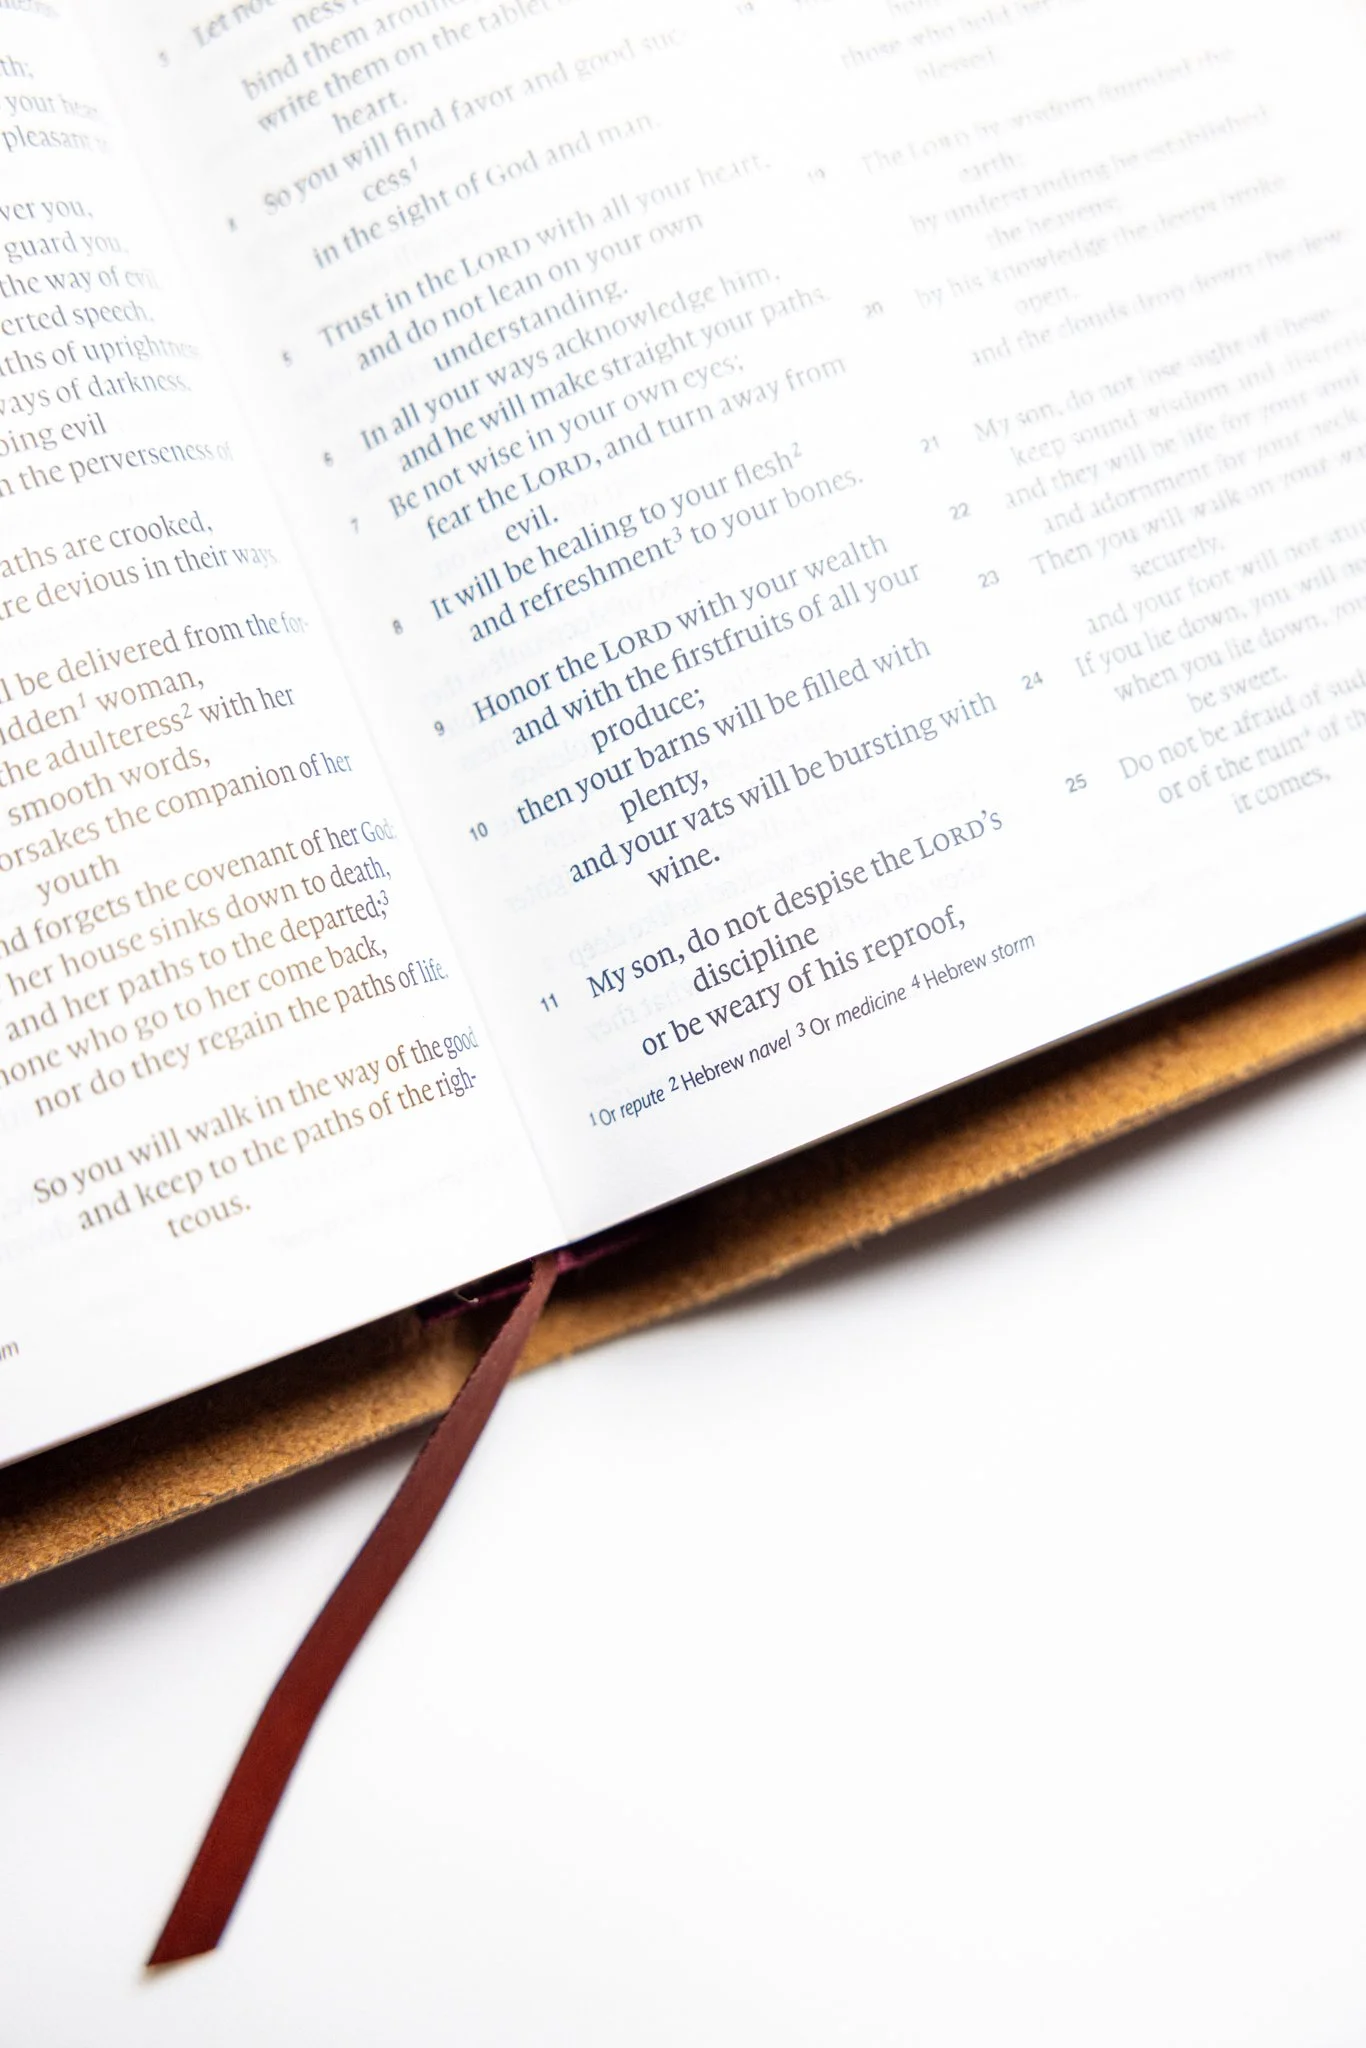 th;
your heart
pleasant
ver you,
guard you,
the way of evil
erted speech,
ths of uprightness
ways of darkness,
oing evil
n the perverseness of
aths are crooked,
re devious in their ways
l be delivered from the for-
idden¹ woman,
the adulteress² with her
smooth words,
orsakes the companion of her
youth
nd forgets the covenant of her God:
her house sinks down to death,
and her paths to the departed;³
none who go to her come back,
nor do they regain the paths of life.
So you will walk in the way of the good
and keep to the paths of the righ-
teous.
Let not
ness
bind them around
write them on the tablet
heart.
4 So you will find favor and good suc-
cess¹
in the sight of God and man.
5 Trust in the LORD with all your heart,
and do not lean on your own
understanding.
6 In all your ways acknowledge him,
and he will make straight your paths.
7 Be not wise in your own eyes;
fear the LORD, and turn away from
evil.
8 It will be healing to your flesh²
and refreshment³ to your bones.
9 Honor the LORD with your wealth
and with the firstfruits of all your
produce;
10 then your barns will be filled with
plenty,
and your vats will be bursting with
wine.
11 My son, do not despise the LORD's
discipline
or be weary of his reproof,
those who hold her
blessed.
19 The LORD by wisdom founded the
earth;
by understanding he established
the heavens;
20 by his knowledge the deeps broke
open,
and the clouds drop down the dew.
21 My son, do not lose sight of these—
keep sound wisdom and discretion,
22 and they will be life for your soul
and adornment for your neck.
23 Then you will walk on your way
securely,
and your foot will not stum
24 If you lie down, you will not
when you lie down, your
be sweet.
25 Do not be afraid of sud
or of the ruin⁴ of the
it comes,
¹ Or repute ² Hebrew navel ³ Or medicine ⁴ Hebrew storm